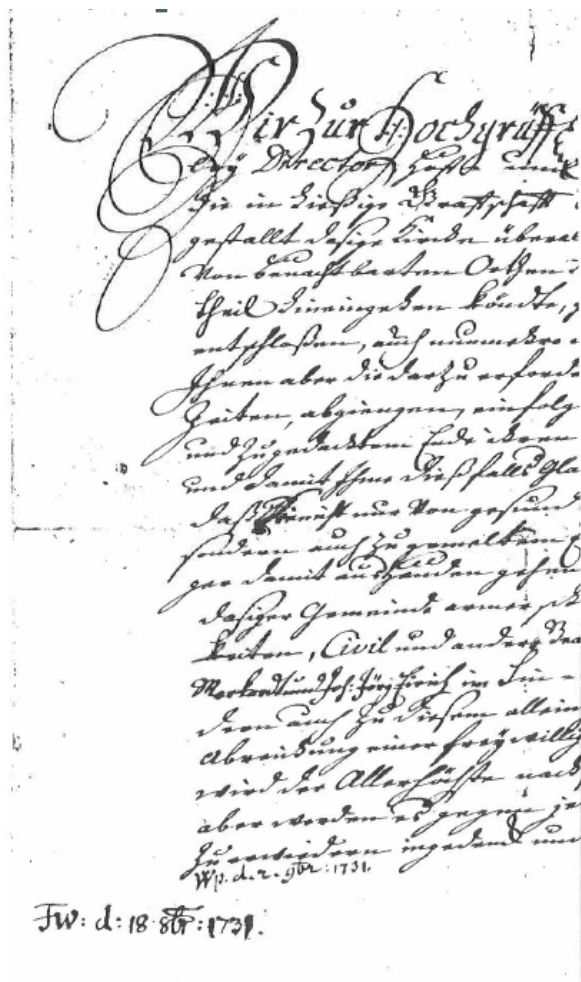 Wir zur Hochgräff
ley Director Hoff und
die in hießige Graffschafft
gestallt dasige Kirche übera
Von benachtbarten Orthen
theil hineingehen köndte,
entschloßen, auch nunmehro
Ihnen aber die darzu erforde
Zeiten, abgiengen, einfolg
und zu gedachtem Ende ihren
und damit Ihme dießfalls Gla
daß nur Von gesund
sondern auch zu gemeltem
ger damit aus Händen gehen
dasiger Gemeinde armer
keiten, Civil und andere Bea
und Joh: Jörg in
dern auch zu diesem allein
Abreichung einer freywillig
wird der Allerhöchste
aber werden es gegen je
Zu erwiedern ingedenck und
Wp. d. 2. 9br: 1731.
Fw: d: 18 8br: 1731.